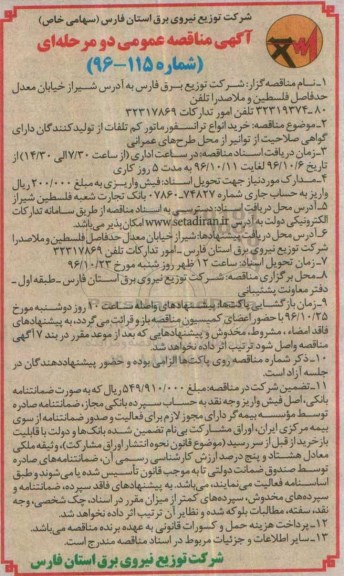 شرکت توزیع نیروی برق استان فارس (سهامی خاص)
آگهی مناقصه عمومی دو مرحله‌ای
(شماره ۱۱۵-۹۶)
۱-نام مناقصه‌گزار: شرکت توزیع برق فارس به آدرس شیراز خیابان معدل
حدفاصل فلسطین و ملاصدرا تلفن
۸۰-۳۲۳۱۹۳۷۴ تلفن امور تدارکات ۳۲۳۱۷۸۶۹
۲-موضوع مناقصه: خرید انواع ترانسفورماتور کم تلفات از تولیدکنندگان دارای
گواهی صلاحیت از توانیر از محل طرح‌های عمرانی
۳-زمان دریافت اسناد مناقصه: در ساعت اداری (از ساعت ۷/۳۰ الی ۱۴/۳۰) از
تاریخ ۹۶/۱۰/۶ لغایت ۹۶/۱۰/۱۱ به مدت ۵ روز کاری
۴-مدارک مورد نیاز جهت تحویل اسناد: فیش واریزی به مبلغ ۲۰۰/۰۰۰ ریال
واریز به حساب جاری شماره ۷۴۸۲۷-۷۸۶۰ بانک تجارت شعبه فلسطین شیراز
۵-آدرس محل دریافت اسناد: دسترسی به اسناد مناقصه از طریق سامانه تدارکات
الکترونیکی دولت به آدرس www.setadiran.ir امکان‌پذیر می‌باشد.
۶-آدرس محل دریافت پیشنهادها: شیراز خیابان معدل حدفاصل فلسطین و ملاصدرا
شرکت توزیع نیروی برق استان فارس-امور تدارکات تلفن ۳۲۳۱۷۸۶۹
۷-زمان تحویل اسناد: ساعت ۱۲ ظهر روز شنبه مورخ ۹۶/۱۰/۲۳
۸-محل برگزاری مناقصه: شرکت توزیع نیروی برق استان فارس-طبقه اول-
دفتر معاونت پشتیبانی
۹-زمان بازگشایی پاکت‌ها: پیشنهادهای واصله ساعت ۱۰ روز دوشنبه مورخ
۹۶/۱۰/۲۵ با حضور اعضای کمیسیون مناقصه باز و قرائت می‌گردد، به پیشنهادهای
فاقد امضاء، مشروط، مخدوش و پیشنهادهایی که بعد از موعد مقرر در بند ۷ آگهی
مناقصه واصل شود ترتیب اثر داده نخواهد شد.
۱۰-ذکر شماره مناقصه روی پاکت‌ها الزامی بوده و حضور پیشنهاددهندگان در
جلسه آزاد است.
۱۱-تضمین شرکت در مناقصه: مبلغ ۵۴۹/۹۱۰/۰۰۰ ریال که به صورت ضمانتنامه
بانکی، اصل فیش واریز وجه نقد به حساب سپرده بانکی مجاز، ضمانتنامه صادره
توسط مؤسسه بیمه‌گر دارای مجوز لازم برای فعالیت و صدور ضمانتنامه از سوی
بیمه مرکزی ایران، اوراق مشارکت بی‌نام تضمین شده بانک‌ها و دولت با قابلیت
بازخرید از قبل از سررسید (موضوع قانون نحوه انتشار اوراق مشارکت)، وثیقه ملکی
معادل هشتاد و پنج درصد ارزش کارشناسی رسمی آن، ضمانتنامه‌های صادره
توسط صندوق ضمانت دولتی تا به موجب قانون تأسیس شده یا می‌شوند و طبق
اساسنامه فعالیت می‌نمایند، می‌باشد. به پیشنهادهای فاقد سپرده، ضمانتنامه و
سپرده‌های مخدوش، سپرده‌های کمتر از میزان مقرر در اسناد، چک شخصی، وجه
نقد، سفته، مطالبات بلوکه شده و نظایر آن ترتیب اثر داده نخواهد شد.
۱۲-پرداخت هزینه حمل و کسورات قانونی به عهده برنده مناقصه می‌باشد.
۱۳-سایر اطلاعات و جزئیات مربوط در اسناد مناقصه مندرج است.
شرکت توزیع نیروی برق استان فارس